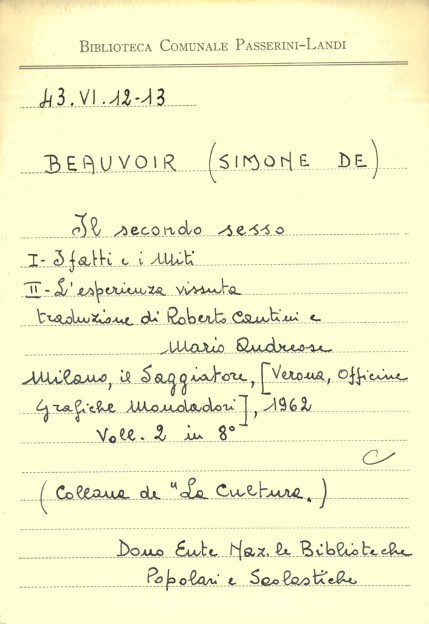 BIBLIOTECA COMUNALE PASSERINI-LANDI
43.VI.12-13
BEAUVOIR (SIMONE DE)
Il secondo sesso
I- I fatti e i Miti
II- L'esperienza vissuta
traduzione di Roberto Cantini e
Mario Andreose
Milano, il Saggiatore, [Verona, Officine
Grafiche Mondadori], 1962
Voll. 2 in 8°
C
(Collana de "La Cultura.)
Dono Ente Naz.le Biblioteche
Popolari e Scolastiche